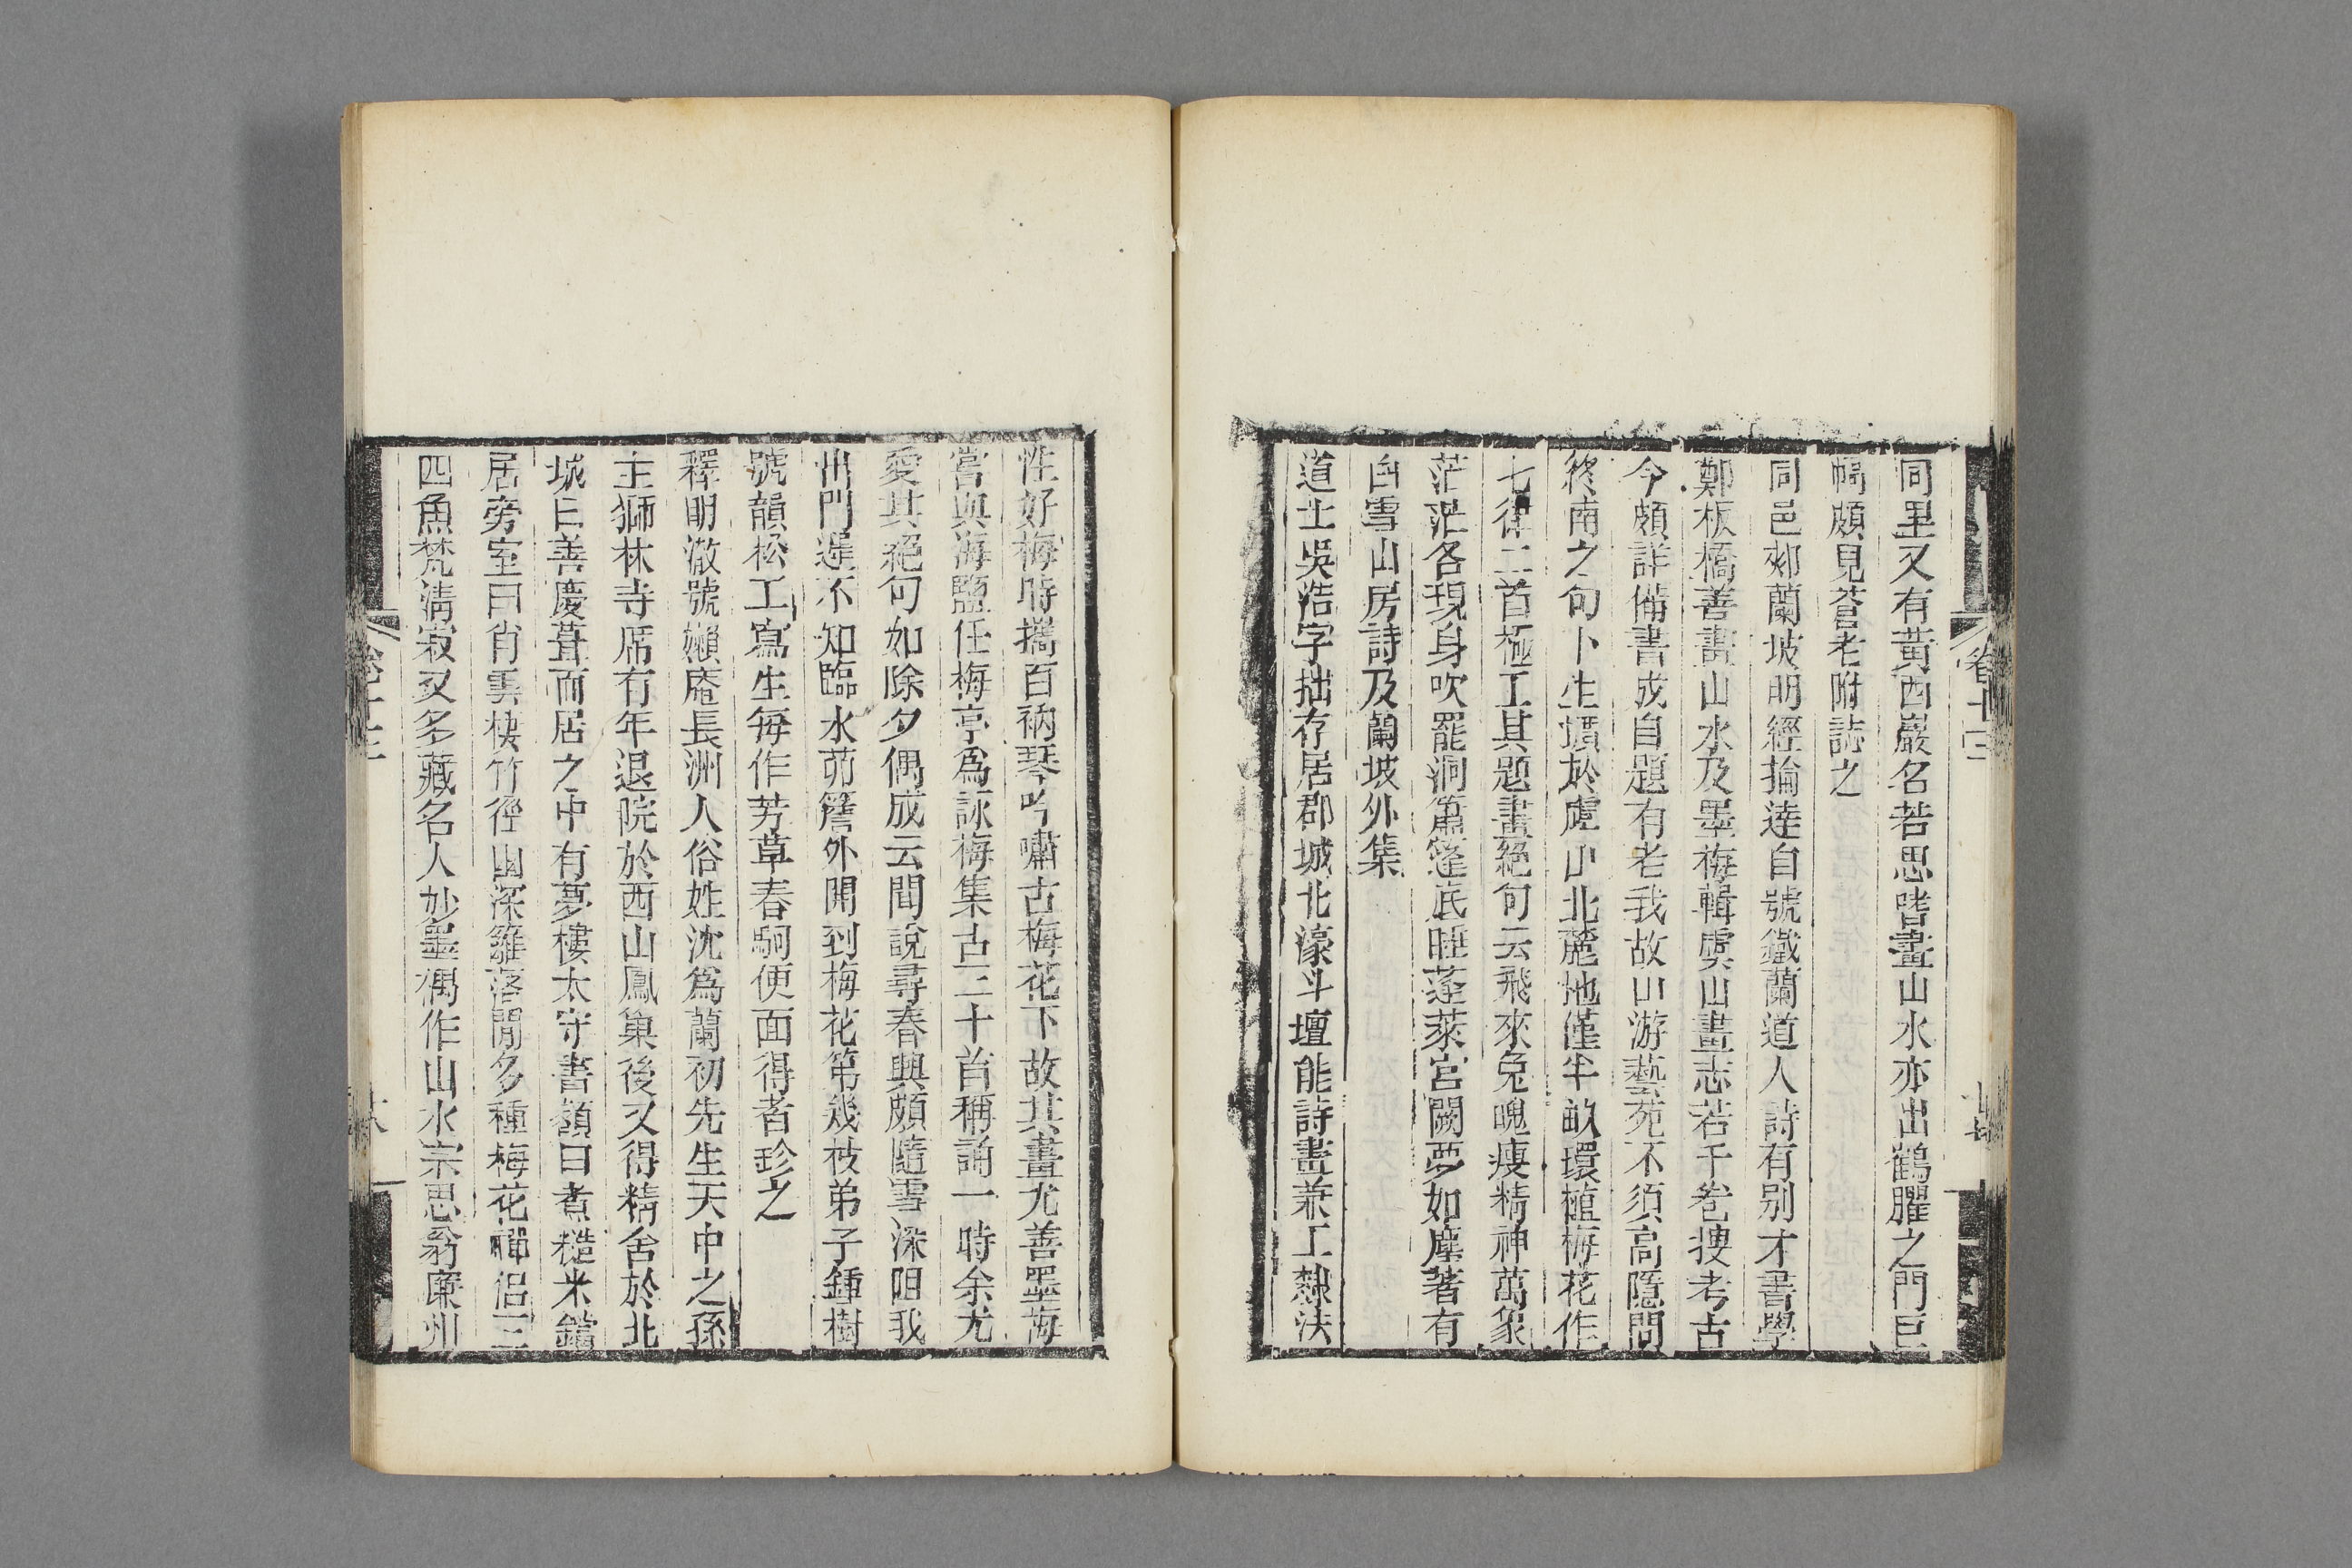 同里又有黃西巖名若思嗜畫山水亦出鶴臞之門巨
幅頗見蒼老附誌之
同邑郟蘭坡明經掄逵自號鐵蘭道人詩有别才書學
鄭板橋善畫山水及墨梅輯虞山畫志若干卷搜考古
今頗詳備書成自題有老我故山游藝苑不須高隱問
終南之句卜生壙於虞山北麓地僅半畝環植梅花作
七律二首極工其題畫絕句云飛來兔魄瘦精神萬象
茫茫各現身吹罷洞簫篷底睡蓬萊宮闕夢如塵著有
白雪山房詩及蘭坡外集
道士吳浩字拙存居郡城北濠斗壇能詩畫兼工隸法
性好梅時攜百衲琴吟嘯古梅花下故其畫尤善墨梅
嘗與海鹽任梅亭爲詠梅集古三十首稱誦一時余尤
愛其絕句如除夕偶成云聞說尋春興頗隨雪深阻我
出門遲不知臨水茆簷外開到梅花第幾枝弟子鍾樹
號韻松工寫生每作芳草春駒便面得者珍之
釋明澈號嬾庵長洲人俗姓沈爲蘭初先生天中之孫
主獅林寺席有年退院於西山鳳巢後又得精舍於北
城曰善慶葺而居之中有夢樓太守書額曰煮糙米鐺
居旁室曰肖雲棲竹徑幽深籬落閒多種梅花禪侶三
四魚梵清寂又多藏名人妙墨偶作山水宗思翁廉州
卷十三
卷十三